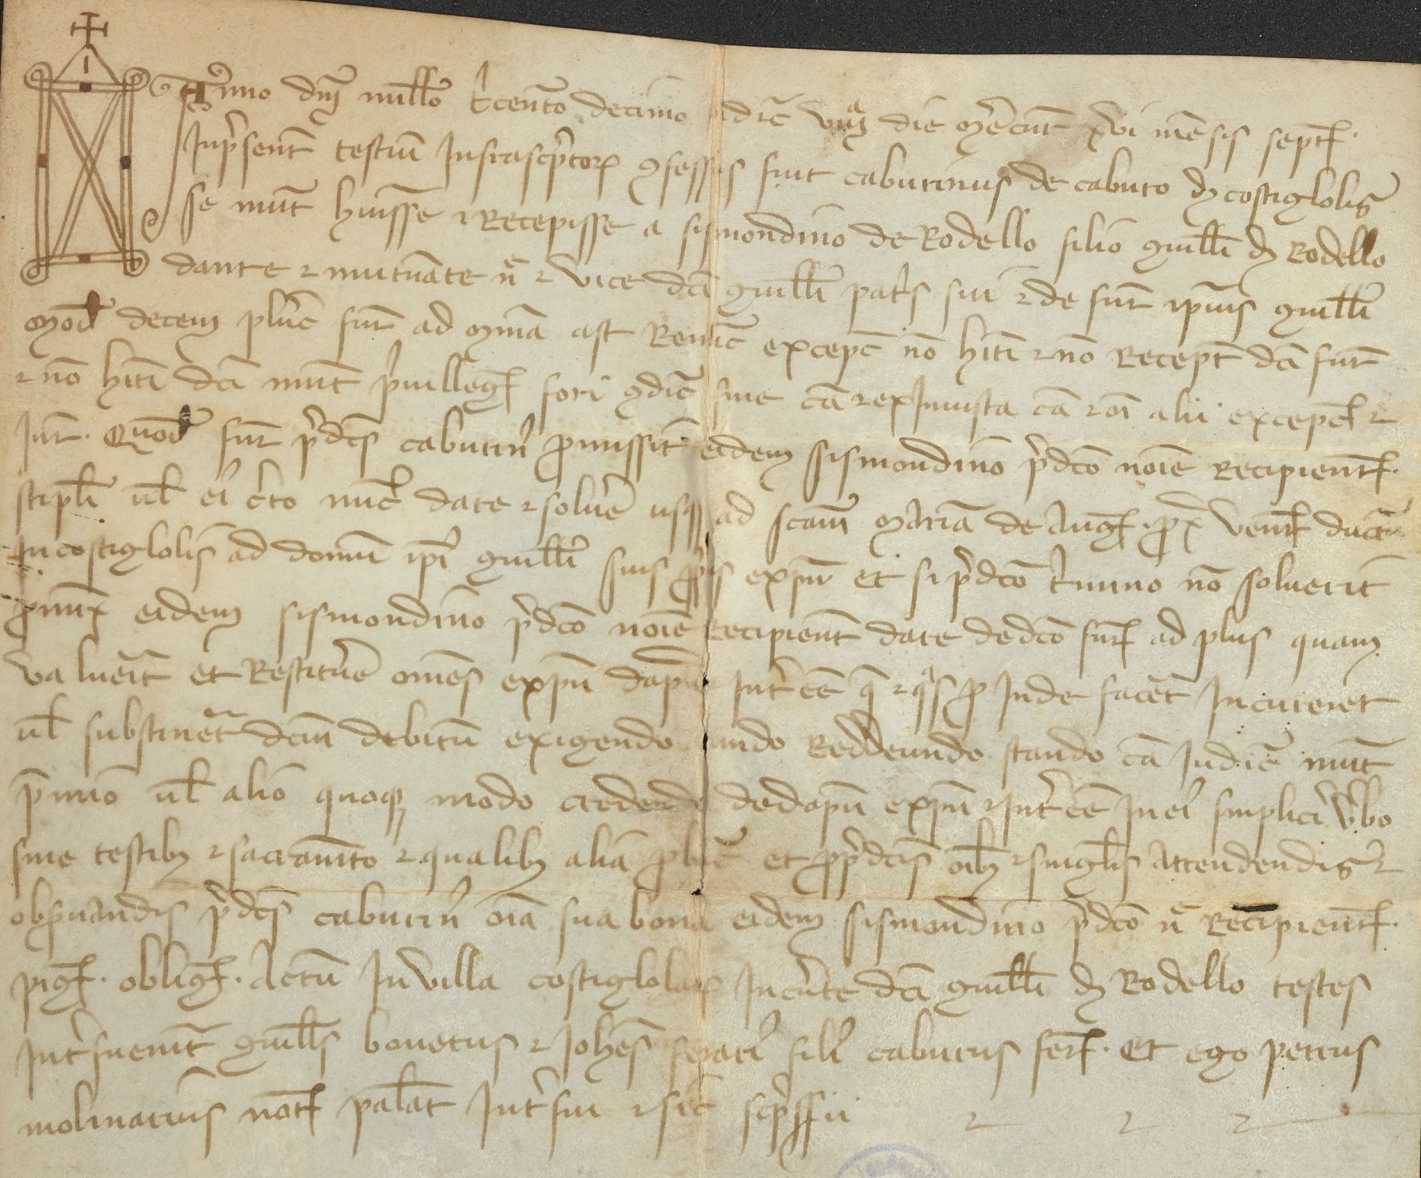 Anno dnj millo trcento decimo indic viija die mercur xvi mensis sept.
In present testiu infrascptor 9fessus fuit caburinus de cabuto d costiglolis
se mut huisse 7 recepisse a sismondino de Rodello filio guilli d Rodello
dante 7 mutuate n 7 vice dci guilli patris sui 7 de fur ipius guilli
mod decem plne fur ad mina ast excepc no hiti 7 no recept dci fur
7 no hiti dci mut priuilleg fori 9dic sine ca 7 ex iniusta ca 7 oi alii excepc 7
iur. Quod fur pdcs caburin pmissit eidem sismondino pdco noie recipient.
stipli ul ei cto nuc dare 7 solue usq ad scam maria de aug. px venit ducta
in costiglolis ad domu ipi guilli suis ppis expn et si pdco tmino no soluerit
pmix eidem sismondino pdco noie recipient dare dedco fur ad plus quam
valuerit et restitue omes expn dapn 7 intee q 7 qs p inde facet incureret
ul substinet dcm debitu exigendo eundo reddeundo stando ca iudic mut
pmio ul alio quoq modo credendo dedapn expn 7 intee in ei simplici vbo
sine testib 7 sacramto 7 qualib alia pbac et p pdcis oib 7 singlis attendendis 7
obseruandis pdcs caburin oia sua bona eidem sismondino pdco n recipient.
pig. oblig. Actu in villa costiglolar in curte dci guilli d Rodello testes
intfuerut guills bouerus 7 johes fili caburus fer. Et ego petrus
molinarius not palat intfui 7 sic scpssi